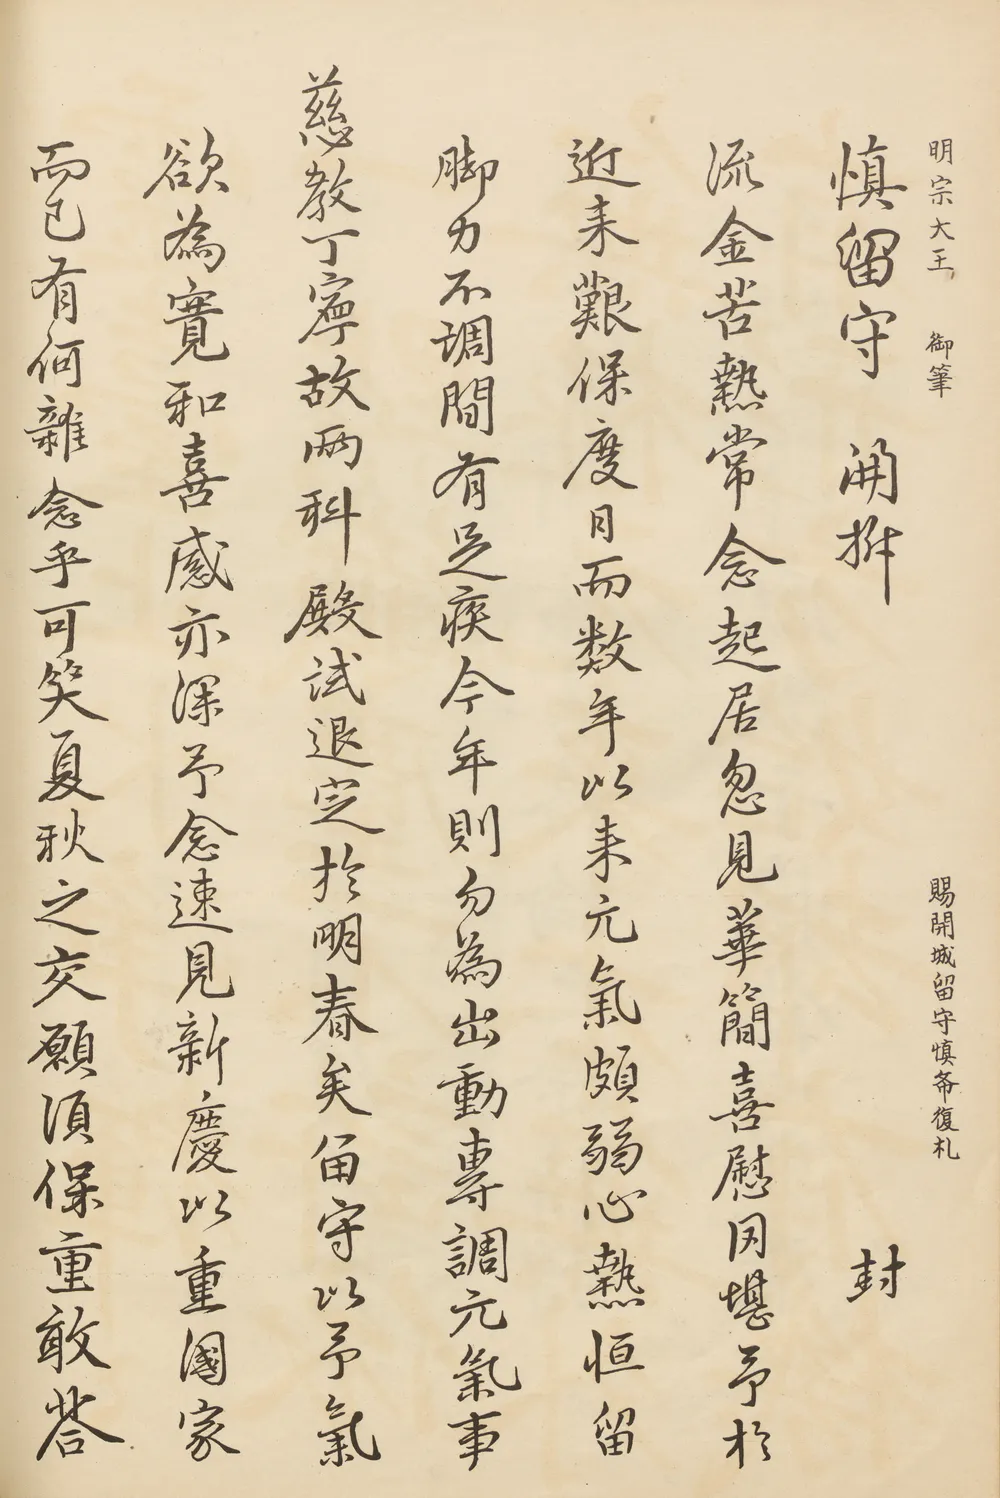 明宗大王 御筆 賜開城留守慎希復札
慎留守 開拆 封
流金苦熱常念起居忽見華簡喜慰罔堪予於
近来艱保度日而数年以来元氣頗弱心熱恒留
脚力不調間有足疾今年則勿為出動專調元氣事
慈教丁寧故兩科殿試退定於明春矣留守以予氣
欲為寬和喜感亦深予念速見新慶以重國家
而已有何雜念乎可笑夏秋之交願須保重敢答